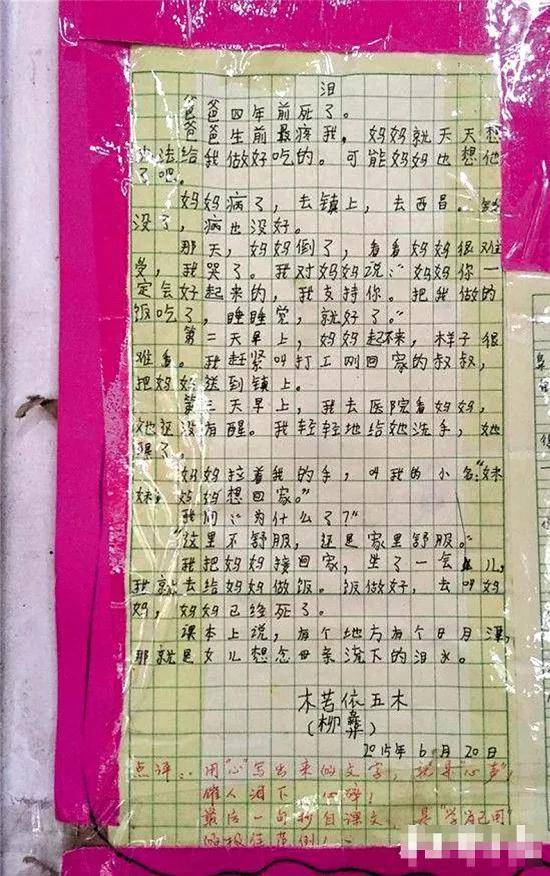 泪
爸爸四年前死了。
爸爸生前最疼我,妈妈就天天想
办法给我做好吃的。可能妈妈也想他
了吧。
妈妈病了,去镇上,去西昌。钱
没了,病也没好。
那天,妈妈倒了,看看妈妈很难
受,我哭了。我对妈妈说:“妈妈你一
定会好起来的,我支持你。把我做的
饭吃了,睡睡觉,就好了。”
第二天早上,妈妈起不来,样子很
难看。我赶紧叫打工刚回家的叔叔,
把妈妈送到镇上。
第三天早上,我去医院看妈妈,
她还没有醒。我轻轻地给她洗手,她
醒了。
妈妈拉着我的手,叫我的小名:“妹
妹,妈妈想回家。”
我问:“为什么了?”
“这里不舒服,还是家里舒服。”
我把妈妈接回家,坐了一会儿,
我就去给妈妈做饭。饭做好,去叫妈
妈,妈妈已经死了。
课本上说,有个地方有个日月潭,
那就是女儿想念母亲流下的泪水。
木苦依五木
(柳彝)
2015年6月20日
点评:用“心”写出来的文字,就是“心声”,
催人泪下 心碎!
最后一句抄自课文,是“学为己用”
的极佳范例!